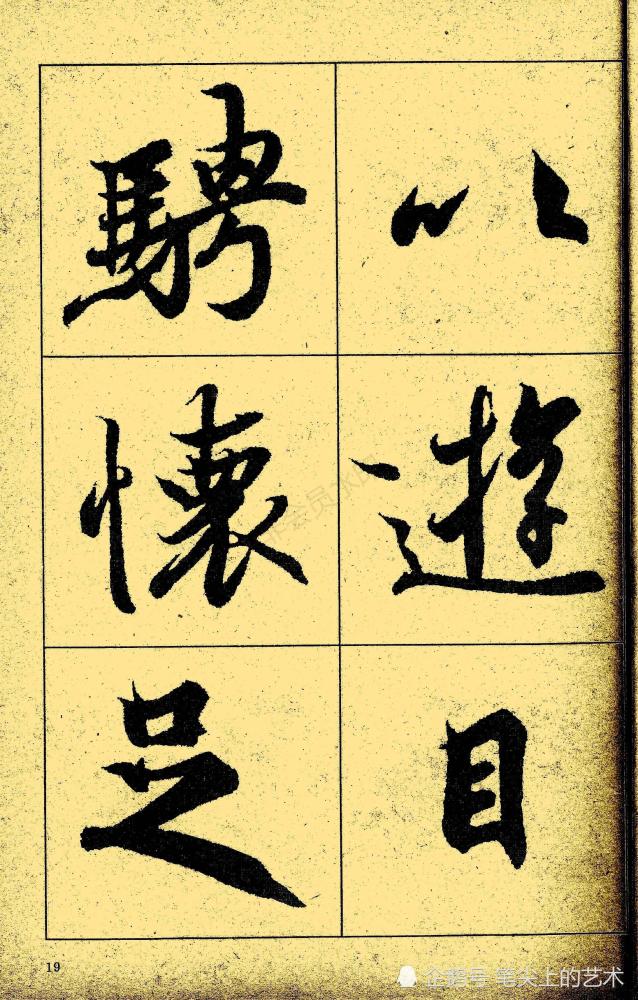 以遊目
騁懷足
19
企鹅号 笔尖上的艺术